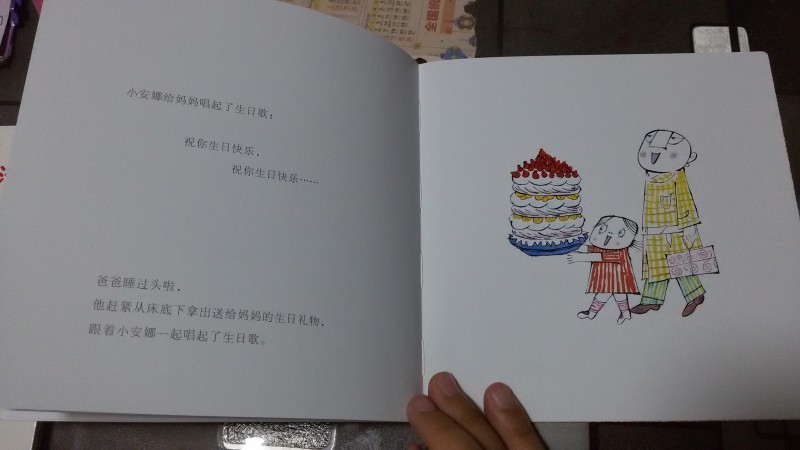 小安娜给妈妈唱起了生日歌：
祝你生日快乐，
祝你生日快乐……
爸爸睡过头啦，
他赶紧从床底下拿出送给妈妈的生日礼物，
跟着小安娜一起唱起了生日歌。